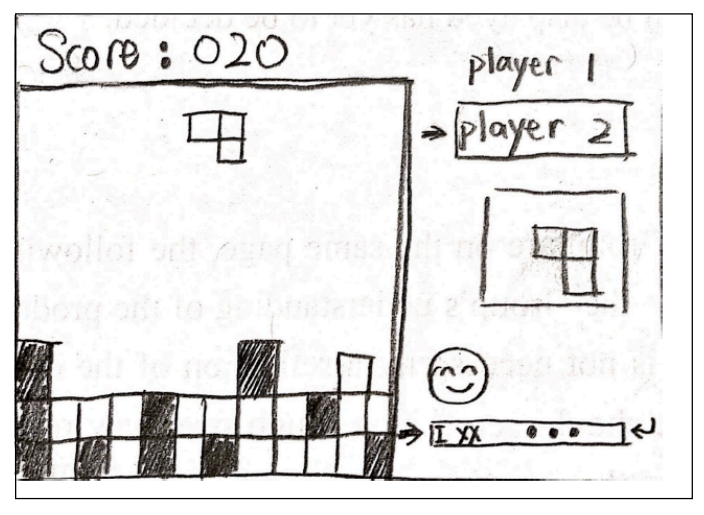 Score : 020
player 1
player 2
I XX ...